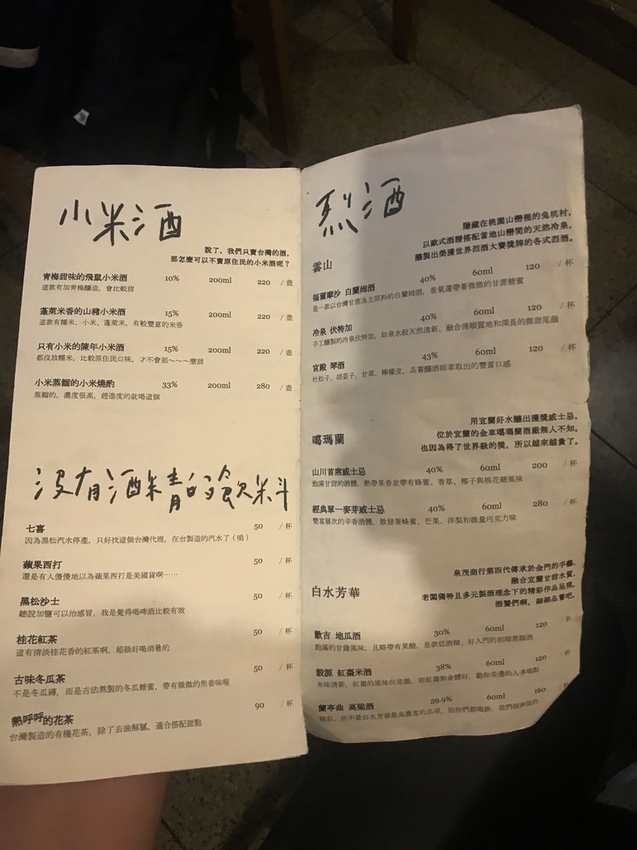 小米酒
說了，我們只賣台灣的酒，
那怎麼可以不賣原住民的小米酒呢？
青梅甜味的飛鼠小米酒 10% 200ml 220 / 壺
這款有加青梅釀造，會比較甜
蓬萊米香的山豬小米酒 15% 200ml 220 / 壺
這款有糯米、小米、蓬萊米，有較豐富的米香
只有小米的陳年小米酒 15% 200ml 220 / 壺
都沒放糯米，比較原住民口味，才不會那～～～麼甜
小米蒸餾的小米燒酌 33% 200ml 280 / 壺
蒸餾的，濃度很高，趕進度的就喝這個
沒有酒精的飲料
七喜 50 / 杯
因為黑松汽水停產，只好找這個台灣代理，在台製造的汽水了（嗚）
蘋果西打 50 / 杯
還是有人傻傻地以為蘋果西打是美國貨啊⋯⋯
黑松沙士 50 / 杯
聽說加鹽可以治感冒，我是覺得喝啤酒比較有效
桂花紅茶 50 / 杯
這有清淡桂花香的紅茶啊，超級好喝消暑的
古味冬瓜茶 50 / 杯
不是冬瓜磚，而是古法熬製的冬瓜糖蜜，帶有微微的焦香味喔
熱呼呼的花茶 90 / 杯
台灣製造的有機花茶，除了去油解膩，適合搭配甜點
烈酒
隱藏在桃園山巒裡的兔坑村，
以歐式酒譜搭配當地山巒間的天然冷泉，
釀製出榮獲世界烈酒大賽獎牌的各式烈酒。
雲山
福爾摩沙 白蘭姆酒 40% 60ml 120 / 杯
是一款以台灣甘蔗為主原料的白蘭姆酒，香氣還帶著微微的甘蔗糖蜜
冷泉 伏特加 40% 60ml 120 / 杯
手工釀製的冷泉伏特加，如泉水般天然清新，融合滑順質地和深長的微甜尾韻
宜殿 琴酒 43% 60ml 120 / 杯
杜松子、胡荽子、甘草、檸檬皮，品嘗釀酒師萃取出的豐富口感
用宜蘭好水釀出獲獎威士忌。
位於宜蘭的金車噶瑪蘭酒廠無人不知。
也因為得了世界級的獎，所以越來越貴了。
噶瑪蘭
山川首席威士忌 40% 60ml 200 / 杯
飽滿甘甜的酒體，熱帶果香並帶有蜂蜜、香草、椰子與桔花糖風味
經典單一麥芽威士忌 40% 60ml 280 / 杯
豐富層次的辛香酒體，散發著蜂蜜、芒果、洋梨和微量巧克力味
泉茂商行第四代傳承於金門的手藝，
融合宜蘭甘甜水質，
老闆獨特且多元製酒理念下的精彩作品呈現，
酒饕們啊，細細品嘗吧。
白水芳華
歡吉 地瓜酒 30% 60ml 120 / 杯
飽滿的甘藷風味，且略帶有果酸，是款低酒精、好入門的初階蒸餾酒
穀源 紅棗米酒 38% 60ml 120 / 杯
蘭亭曲 高粱酒 59.9% 60ml 180 / 杯